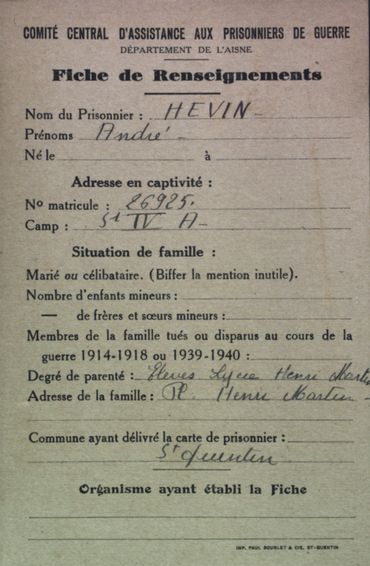 COMITÉ CENTRAL D'ASSISTANCE AUX PRISONNIERS DE GUERRE
DÉPARTEMENT DE L'AISNE
Fiche de Renseignements
Nom du Prisonnier : HEVIN
Prénoms André
Né le à
Adresse en captivité :
No matricule : 26925.
Camp : St IV A
Situation de famille :
Marié ou célibataire. (Biffer la mention inutile).
Nombre d'enfants mineurs :
— de frères et sœurs mineurs :
Membres de la famille tués ou disparus au cours de la
guerre 1914-1918 ou 1939-1940 :
Degré de parenté : Eleves Lycée Henri Martin
Adresse de la famille : Pl. Henri Martin
Commune ayant délivré la carte de prisonnier :
St Quentin
Organisme ayant établi la Fiche
IMP. PAUL DOURLET & CIE, ST-QUENTIN